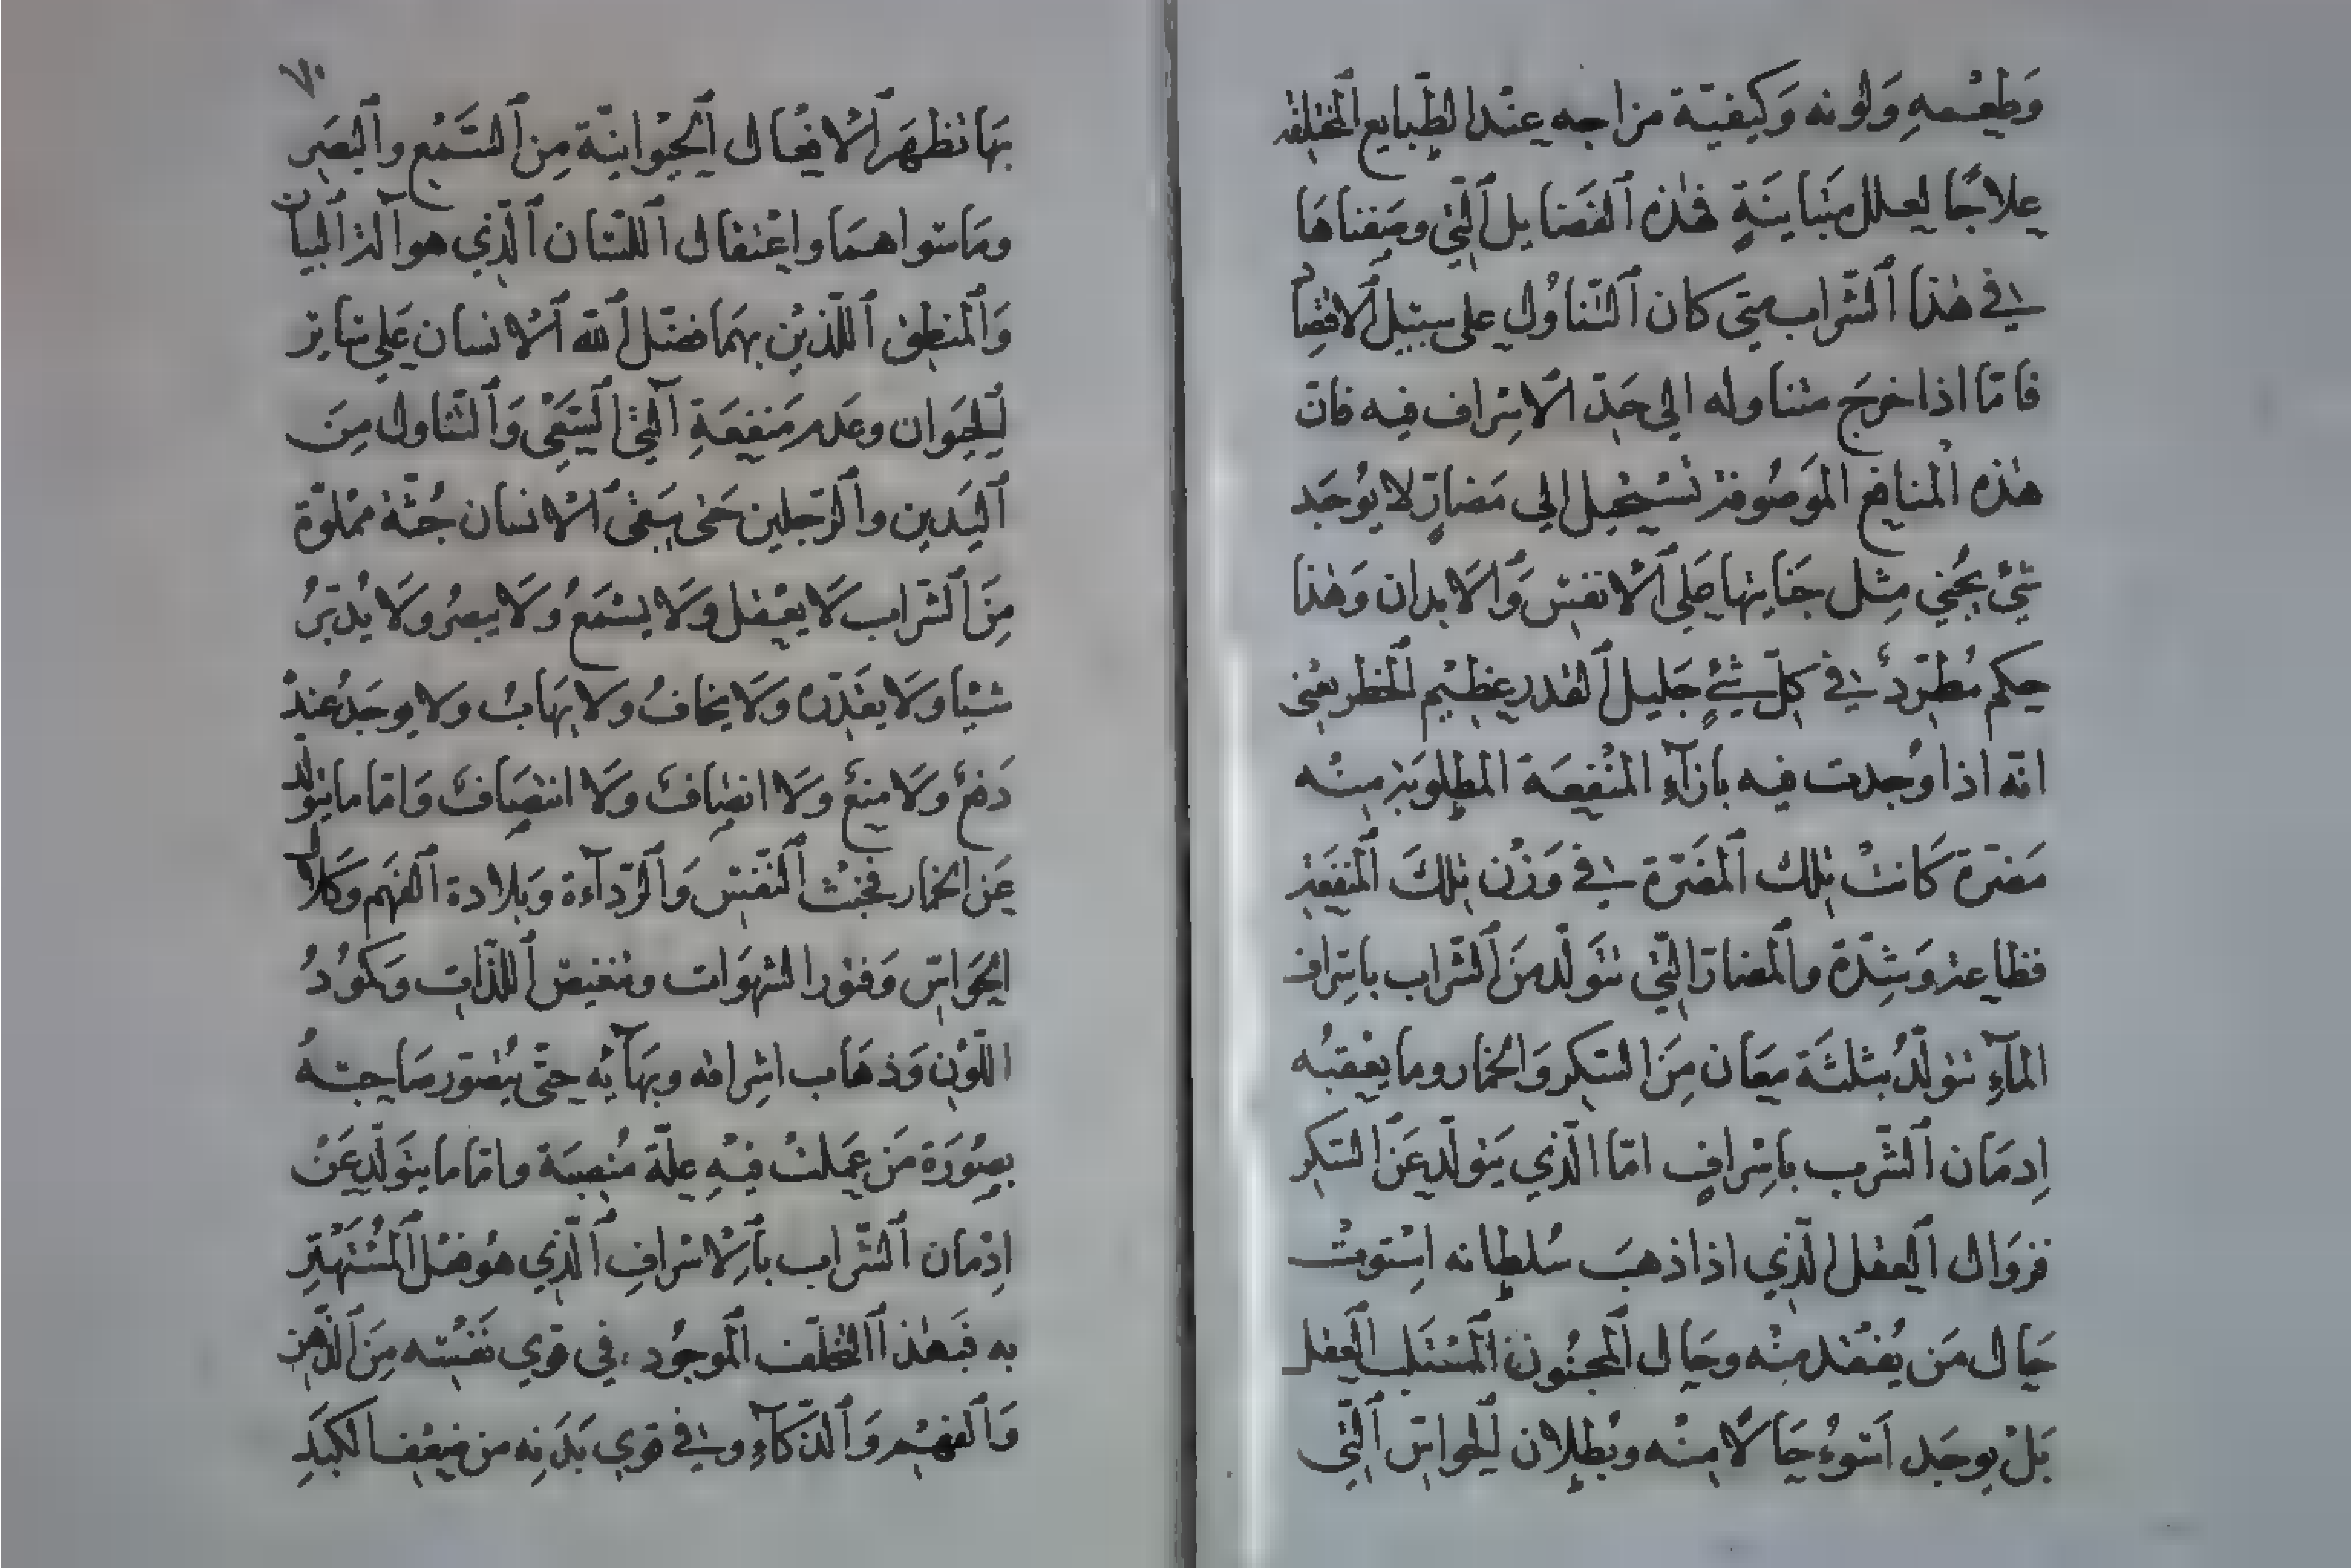 وَطَعْمهِ وَلونه وَكيفيّة مزاجه عِنْدا لطَّبايع اَلمختلفة
علاجًا لعلل متباينَةٍ فهٰذه اَلفَضَايل اَلتي وصَفناهَا
في هٰذا اَلشّراب متى كان اَلتّناوُل على سبيل اَلاقتِصَاد
فامّا اذا خرجَ متناوله الى حَدّ اَلاسْراف فيه فانّ
هٰذه اَلمنافع الموَصُوفة تسْتحْيل الى مَضارٍّ لا يوُجَد
شيْ يجْني مِثل جَنايتها عَلى اَلانفسْ وَاَلاَبدان وَهٰذا
حكم مُطّرَدٌ في كلّ شيْءٍ جَليل اَلقدر عظيْم اَلخطر يعْني
انّه اذا وُجدت فيه بازآءِ المنْفعَة المطلوبة منْه
مَضرّة كَانتْ تلك اَلمضَرّة في وَزْن تلكَ اَلمنفعَة
فظاعة وَشِدّة واَلمضارّ الّتي تتَولّد منَ اَلشّراب باسِراف
المآءِ تتولّدُ بثلثَة مَعَان مِنَ السّكر وَالخمار وما يعْقبُه
اِدمَان اَلشّرب باسْرافٍ امّا الّذي يَتولّد عَنَ السّكر
فزوَال اَلعقل الّذي اذا ذهبَ سُلطانه اسْتوتْ
حَال مَن يُفتقد منْه وحَال اَلمجنُون اَلمسْتَلب اَلعَقل
بَلْ يوجَد اَسْوءُ حَالاً منْه وبُطلان اَلحواسّ اَلّتي
بهَا تظهَر اَلافعَال اَلحيْوانيّة مِن اَلسّمْع واَلبصَر
ومَا سواهمَا واعْتقال اَللسَان اَلّذي هو آلة اَلبيان
وَاَلمنطق اَللّذيْن بهمَا فضّل اَللّٰه اَلانسان عَلى سَاير
اَلحيَوان وعَدم مَنفعَةِ آلتي اَلسّعْي وَاَلتّناول مِنَ
اَليَدين واَلرّجلين حَتى يبَقى اَلانسان جُثّة ممْلوّة
مِنَ اَلشّراب لَا يعْقل وَلَا يسْمَعُ وَلَا يبصرُ وَلَا يُدبّرُ
شيْئا وَلَا يقَدّره وَلَا يخافُ وَلا يهَابُ وَلا يوجَدُ عندَهُ
دَفعٌ وَلَا منعٌ وَلَا انصَافٌ وَلَا انتصَافٌ وَامّا ما يتولّد
عَن الخمار فخبْث اَلنّفس وَاَلرّدآءة وَبلادة اَلفهَم وَكَلال
الحَواسّ وَفتور الشهوَات وتنغيص اَللّذات وَكمُودُ
اللّوْن وَذهَاب اشراقه وبهَآئه حتّى يتصّور صَاحبهُ
بصُورَة مَن عَملتْ فيهِ علّة مُنصبَة وامّا ما يتولّد عَنْ
ادْمان اَلشّراب باَلاسْرافِ اَلّذي هُو فعْل اَلمسْتَهْتر
به فَهٰذا اَلتخلّف اَلموجُود في قوي نَفسْه مِنَ اَلذّهن
وَاَلفهْم وَاَلذّكآءِ وفي قوي بَدَنِه من ضعْف اَلكبَدِ